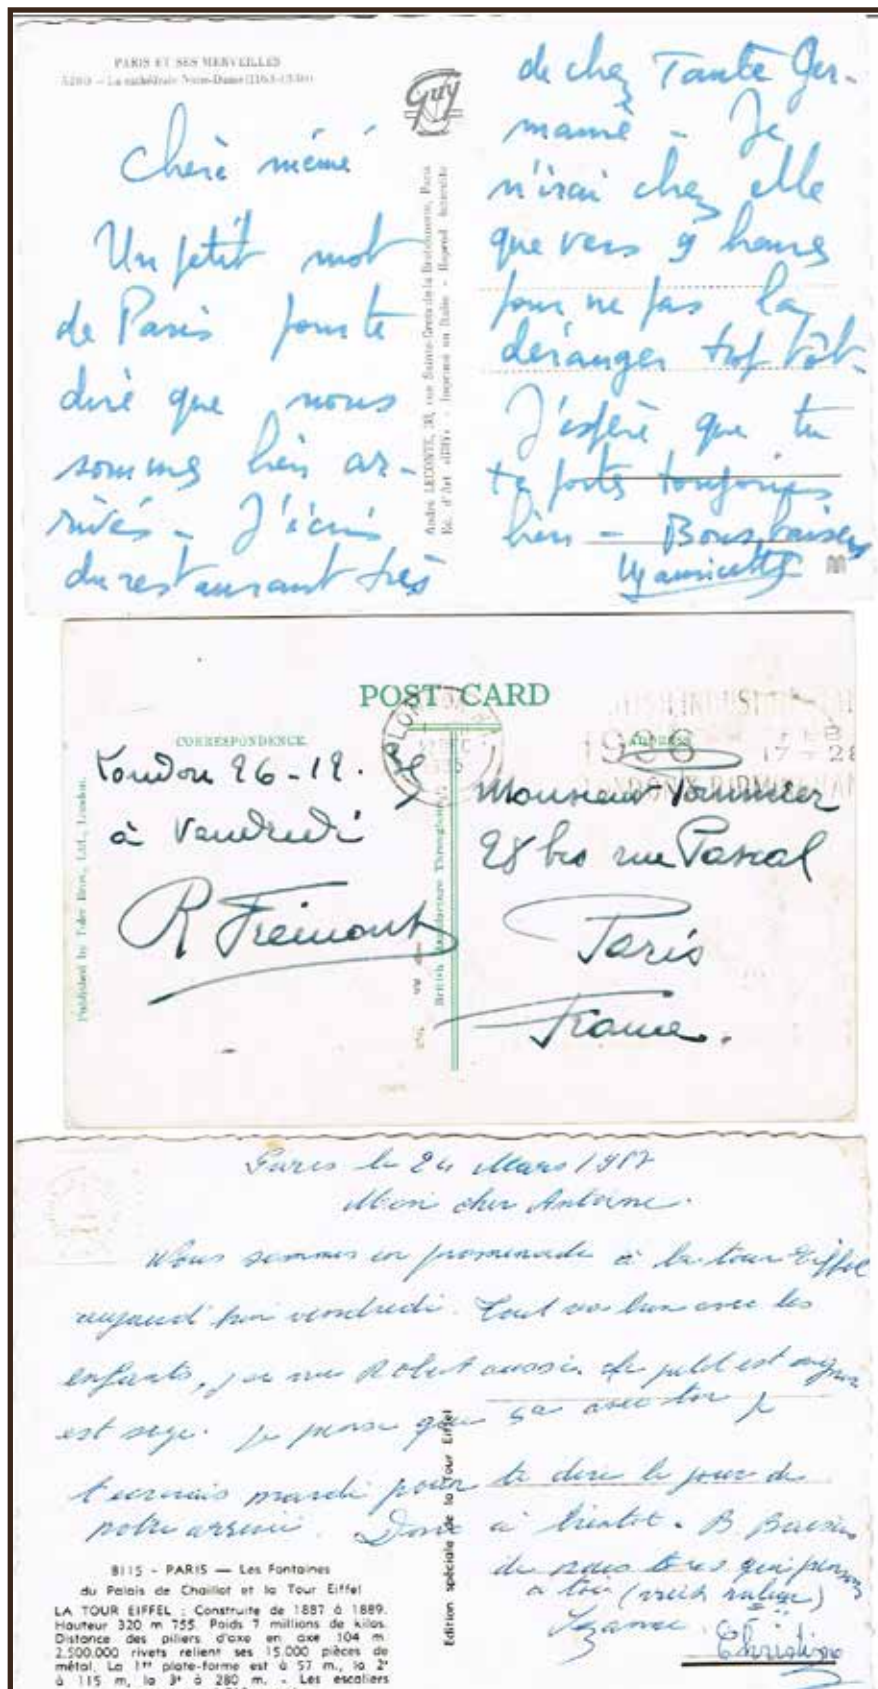 PARIS ET SES MERVEILLES
La cathédrale Notre-Dame (1163-1330)
Guy
Chère mémé
Un petit mot
de Paris pour te
dire que nous
sommes bien ar-
rivés - J'écris
du restaurant très
André LECONTE, 38, rue Sainte-Croix-de-la-Bretonnerie, Paris
Ed. d'Art «GUY» - Imprimé en Italie - Reprod. interdite
de chez Tante Ger-
maine - Je
n'irai chez elle
que vers 9 heures
pour ne pas la
déranger trop tôt.
J'espère que tu
te portes toujours
bien - Bons baisers
Mauricette
POST CARD
CORRESPONDENCE
ADDRESS
1936
17 - 28
London 26-12.35
à Vendredi
R Frémont
Published by Tuler Bros., Ltd., London.
British Manufacture Throughout
Monsieur
28 bis rue Pascal
Paris
France.
Paris le 24 Mars
Mon cher Antoine.
Nous sommes en promenade à la tour Eiffel
vendredi. Tout va bien avec les
enfants, j'ai vu Robert aussi. Le petit est
est sage. je pense que ça avec toi je
t'ecrirais mardi pour te dire le jour de
notre arrivée. Donc a bientot. B. Baisers
de nous tous qui pensons
a toi
Suzanne.
Christine
Edition spéciale de la Tour Eiffel
8115 - PARIS — Les Fontaines
du Palais de Chaillot et la Tour Eiffel
LA TOUR EIFFEL : Construite de 1887 à 1889.
Hauteur 320 m 755. Poids 7 millions de kilos.
Distance des piliers d'axe en axe 104 m.
2.500.000 rivets relient ses 15.000 pièces de
métal. La 1re plate-forme est à 57 m., la 2e
à 115 m, la 3e à 280 m. - Les escaliers